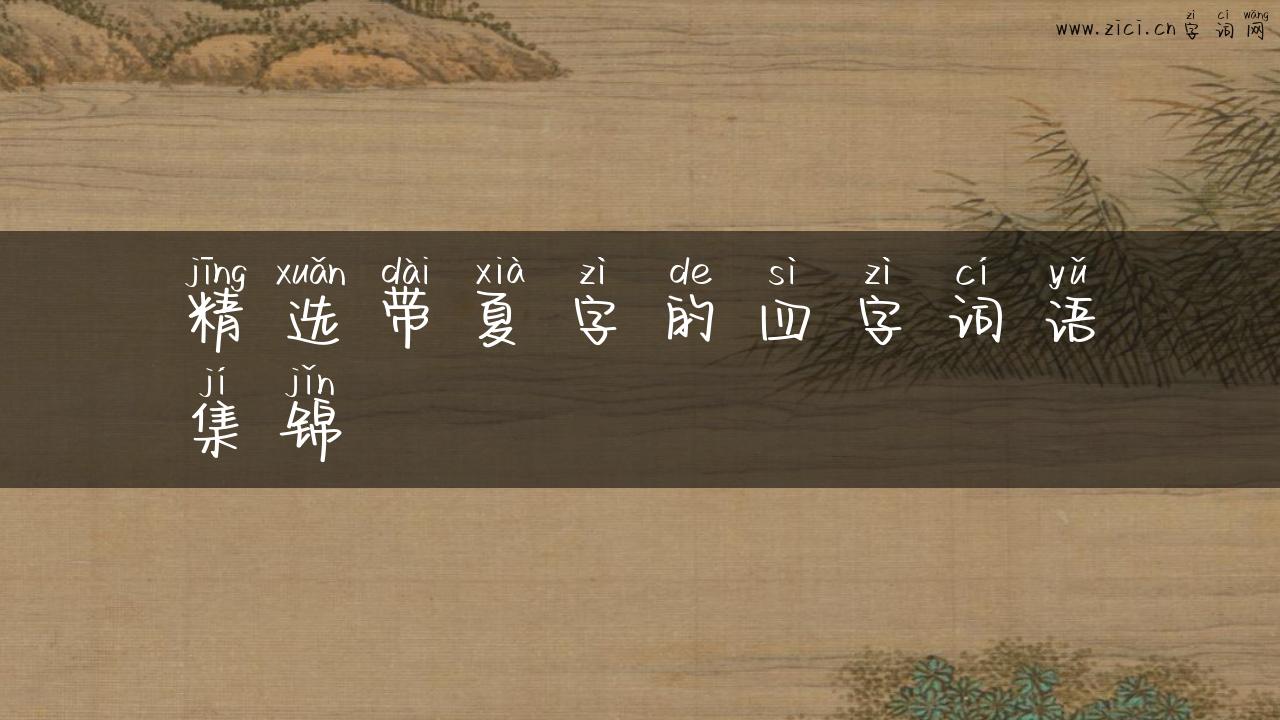 zì cí wǎng
www.zici.cn 字词网
jīng xuǎn dài xià zì de sì zì cí yǔ
精选带夏字的四字词语
jí jǐn
集锦